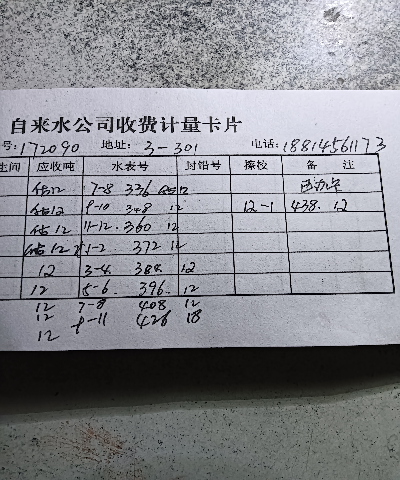 自来水公司收费计量卡片
号:172090 地址: 3-301 电话:18814561173
生间 应收吨 水表号 封铅号 擦校 备注
估12 7-8 336 12 已办卡
估12 9-10 348 12 12-1 438. 12
估12 11-12. 360 12
估12 1-2. 372 12
12 3-4. 384 12
12 5-6. 396. 12
12 7-8 408 12
12 9-11 426 18
12